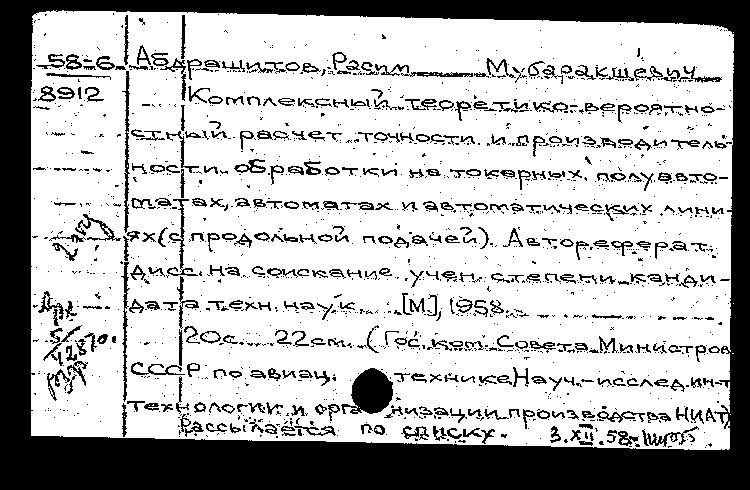 58-6 Абдрашитов, Расим Мубаракшевич
8912 Комплексный теоретико-вероятно-
стный расчет точности и производитель-
ности обработки на токарных полуавто-
матах, автоматах и автоматических лини-
ях (с продольной подачей). Автореферат
дисс. на соискание учен. степени канди-
дата техн. наук. [М], 1958.
20с. 22см. (Гос. ком. Совета Министров
СССР по авиац. технике. Науч.-исслед. ин-т
технологии и организации производства НИАТ)
Рассылается по списку. 3.XII.58-